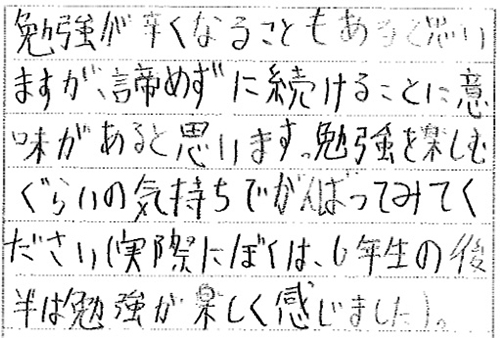 勉強が辛くなることもあると思い
ますが、諦めずに続けることに意
味があると思います。勉強を楽しむ
ぐらいの気持ちでがんばってみてく
ださい(実際にぼくは、6年生の後
半は勉強が楽しく感じました)。